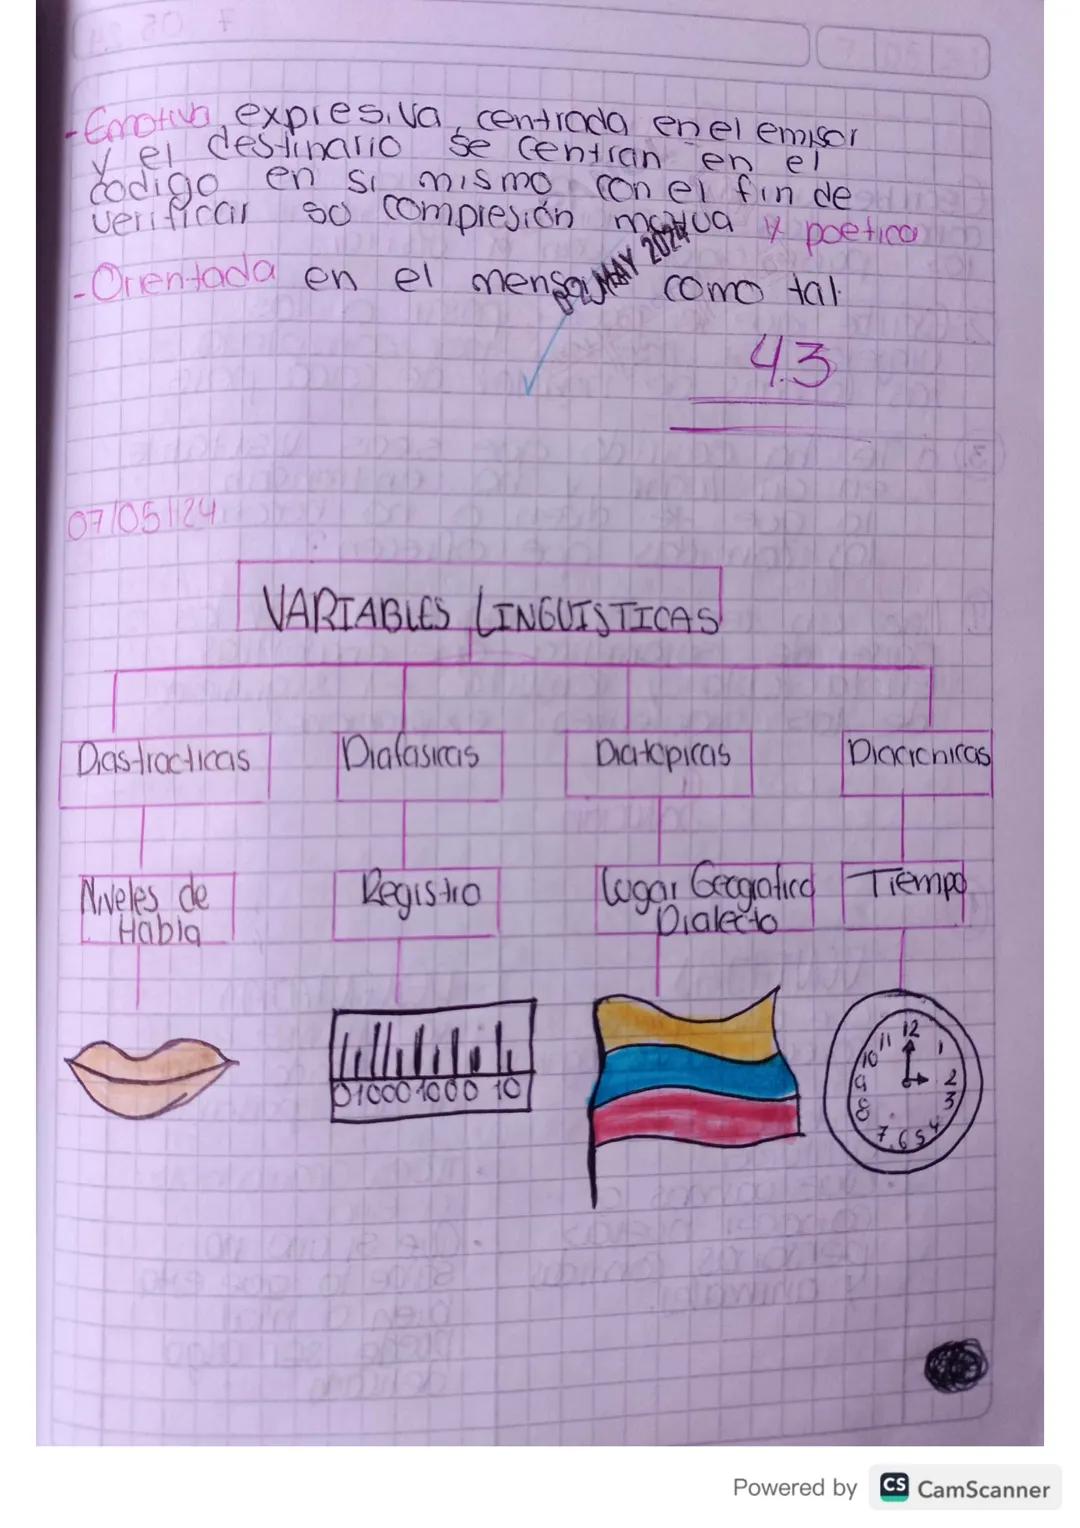 -Emotiva expresiva, centrada en el emisor
y el destinario se centran en el
codigo en si mismo con el fin de
verificar so compresión mutua y poetica
-Orientada en el mensaje como tal.
MAY 2024
4.3
07/05/24
VARIABLES LINGUISTICAS
Diastracticas Diafasicas Diatopicas Diacronicas
Niveles de Habla
Registro
Lugar Geografico
Dialecto
Tiempo
01000 1000 10
12
11 1
10 2
9 3
8 4
7 6 5
Powered by CS CamScanner